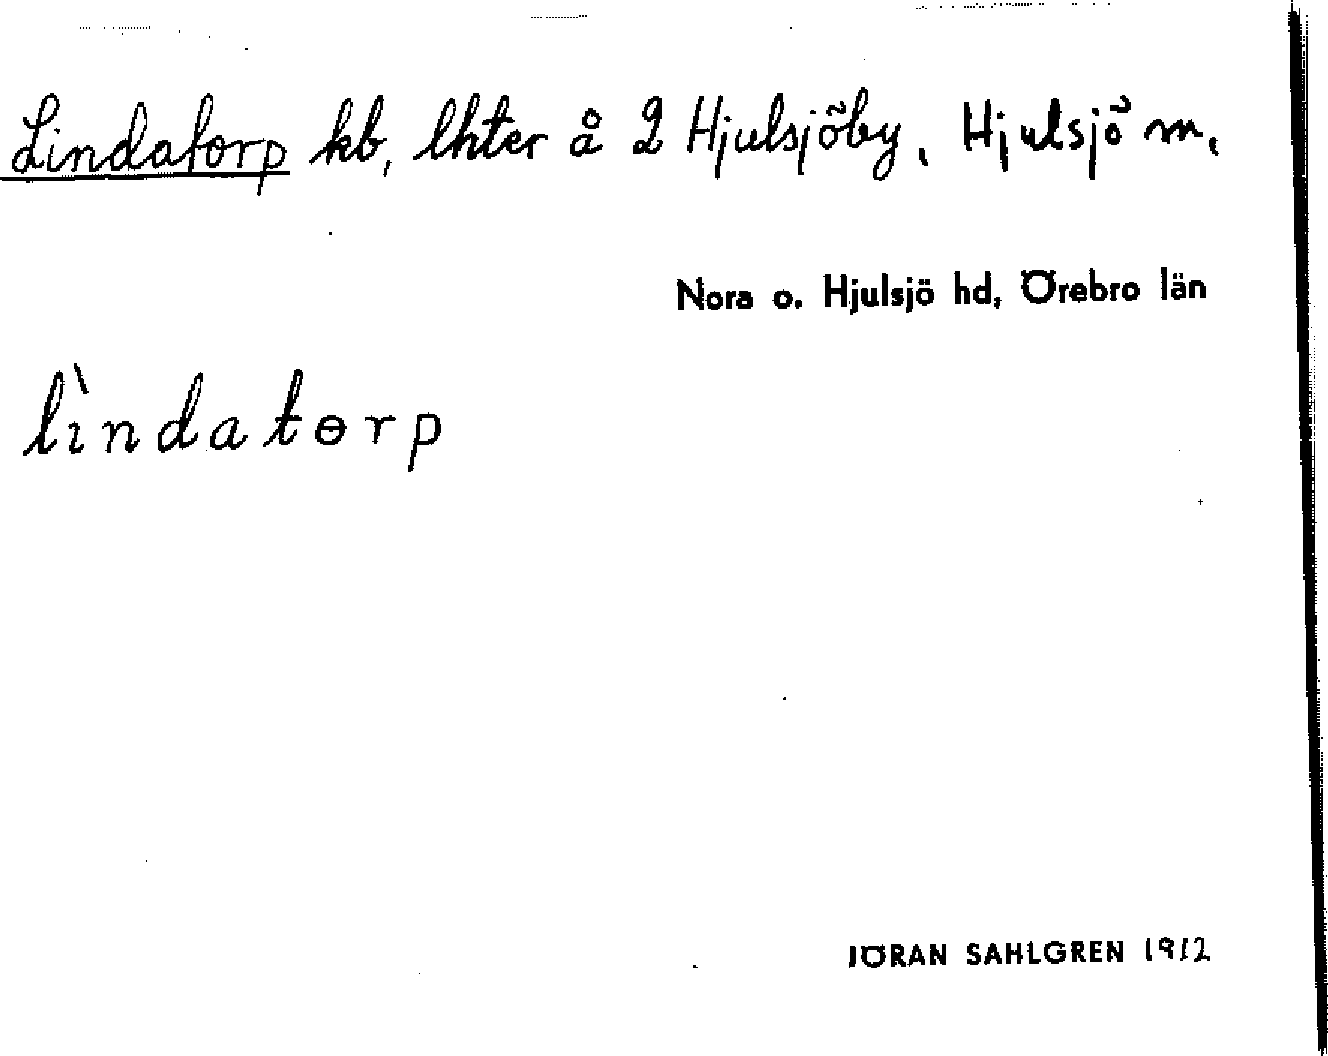 Lindatorp kb, lhter å 2 Hjulsjöby, Hjulsjö m,
Nora o. Hjulsjö hd, Örebro län
lìndatɵrp
JÖRAN SAHLGREN 1912